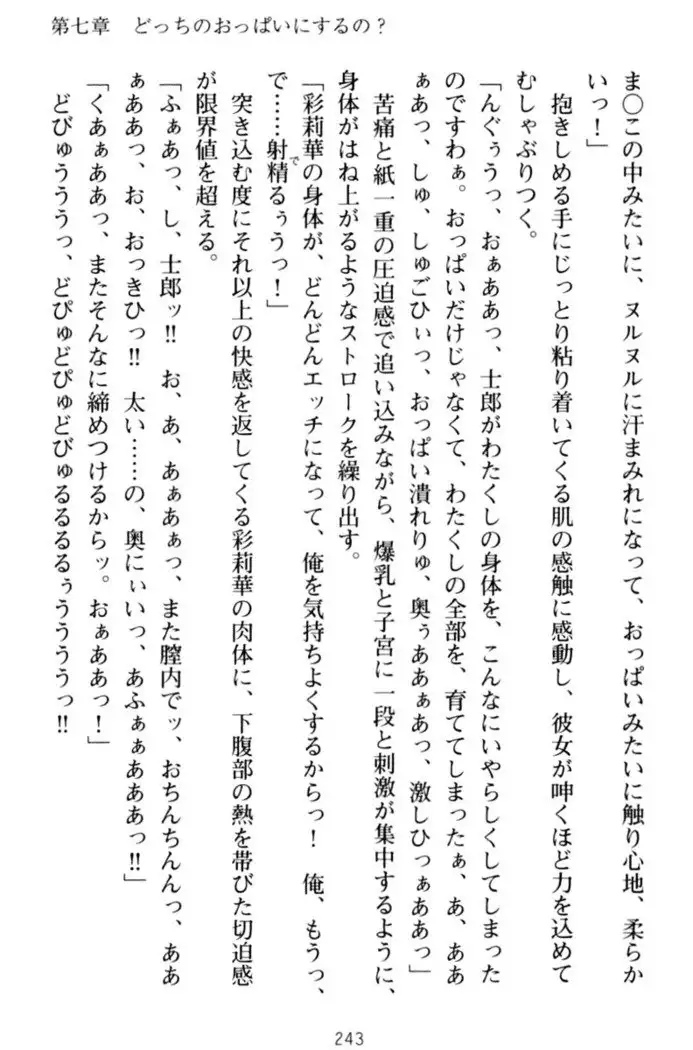 第七章　どっちのおっぱいにするの？
ま〇この中みたいに、ヌルヌルに汗まみれになって、おっぱいみたいに触り心地、柔らか
いっ！」
抱きしめる手にじっとり粘り着いてくる肌の感触に感動し、彼女が呻くほど力を込めて
むしゃぶりつく。
「んぐぅうっ、おぁああっ、士郎がわたくしの身体を、こんなにいやらしくしてしまった
のですわぁ。おっぱいだけじゃなくて、わたくしの全部を、育ててしまったぁ、あ、ああ
ぁあっ、しゅ、しゅごひぃっ、おっぱい潰れりゅ、奥ぅああぁあっ、激しひっぁああっ」
苦痛と紙一重の圧迫感で追い込みながら、爆乳と子宮に一段と刺激が集中するように、
身体がはね上がるようなストロークを繰り出す。
「彩莉華の身体が、どんどんエッチになって、俺を気持ちよくするからっ！　俺、もうっ、
で……射精るぅうっ！」
で
突き込む度にそれ以上の快感を返してくる彩莉華の肉体に、下腹部の熱を帯びた切迫感
が限界値を超える。
「ふぁあっ、し、士郎ッ!!　お、あ、あぁあぁっ、また膣内でッ、おちんちんんっ、ああ
ぁああっ、お、おっきひっ!!　太い……の、奥にぃいっ、あふぁぁあああっ!!」
「くあぁああっ、またそんなに締めつけるからッ。おぁああっ！」
どびゅうううっ、どぴゅどぴゅどびゅるるるるぅううううっ!!
243